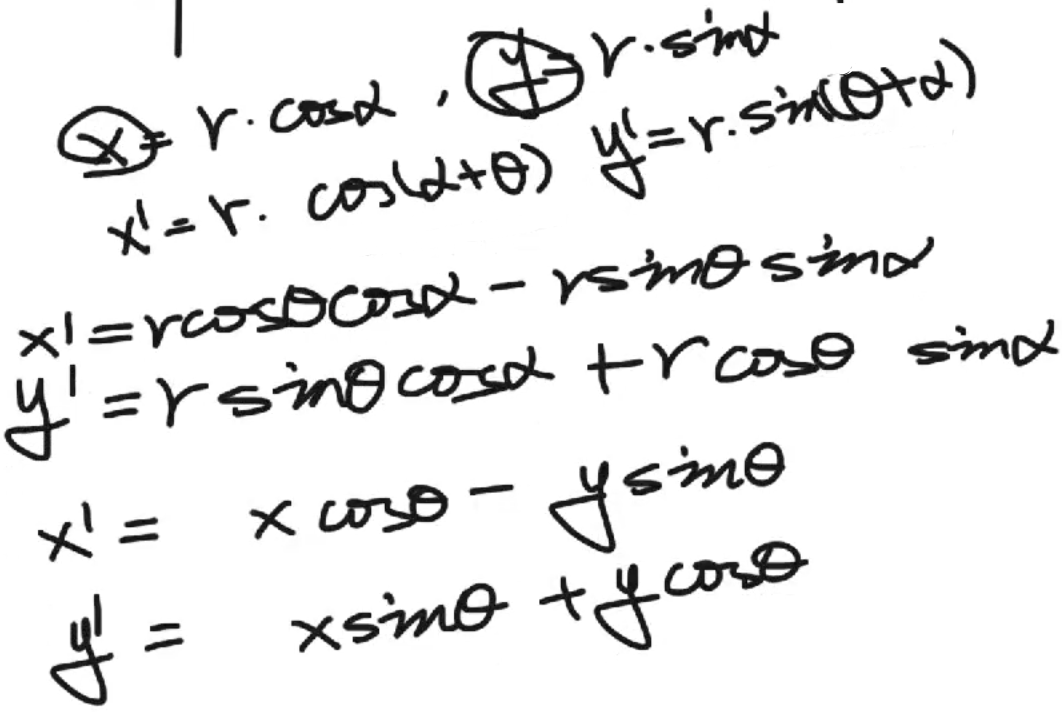 x = r·cosα , y = r·sinα
x' = r· cos(α+θ) y' = r·sin(θ+α)
x' = rcosθcosα - rsinθ sinα
y' = r sinθ cosα + r cosθ sinα
x' = x cosθ - y sinθ
y' = x sinθ + y cosθ